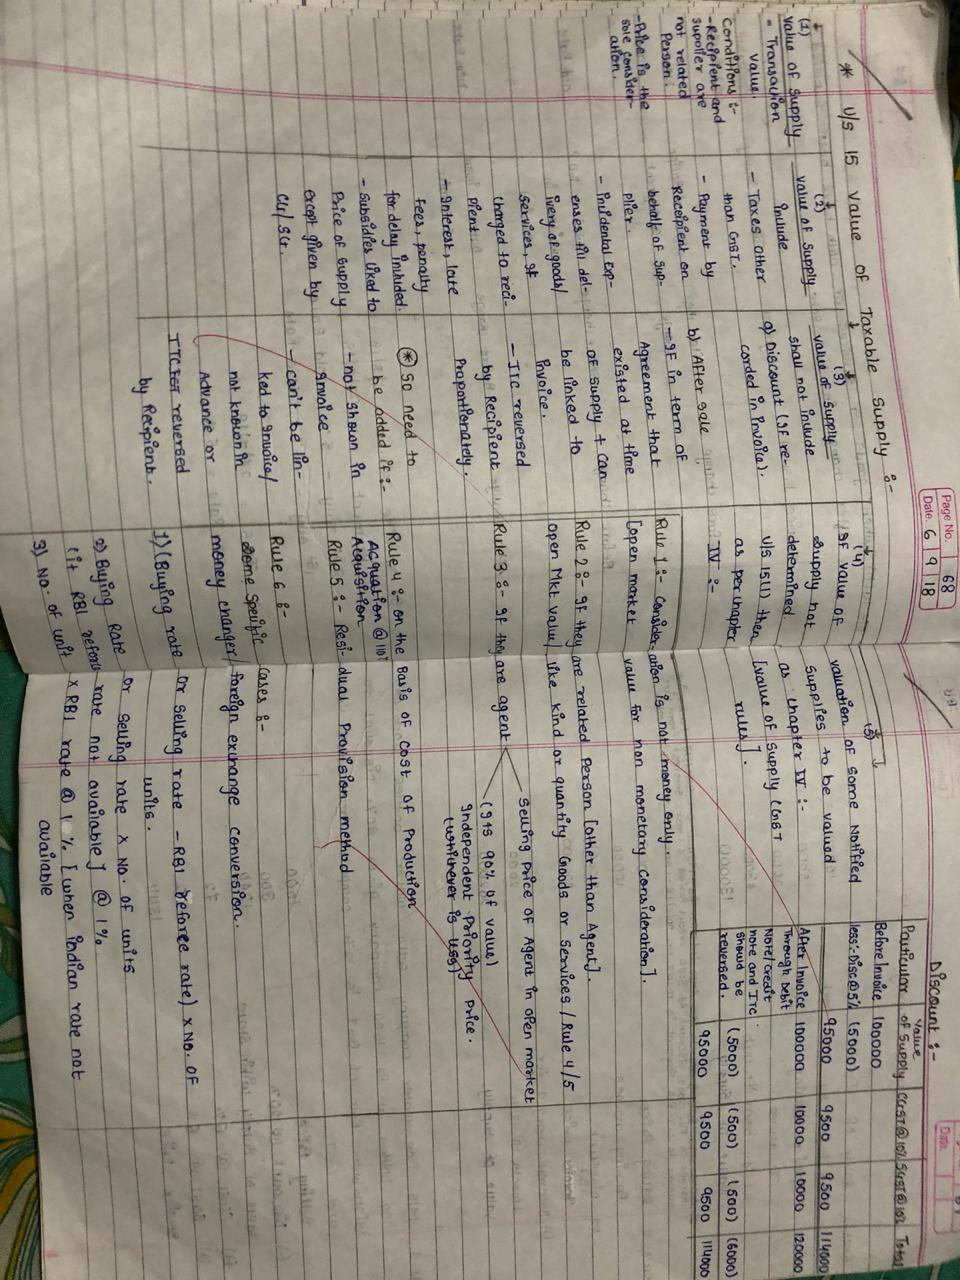 Page No. 68
Date 6 9 18
* U/S 15 Value of Taxable Supply :-
(1)
Value of Supply
= Transaction
Value.
Conditions :-
- Recipient and
supplier are
not related
Person.
- Price is the
sole consider-
ation.
(2)
value of Supply
include
- Taxes other
than GST.
- Payment by
Receipient on
behalf of sup-
plier.
- Incidental Exp-
enses till del-
ivery of goods/
services, If
charged to reci-
pient.
- Interest, late
fees, penalty
for delay included.
- Subsidies liked to
Price of supply
except given by
CG/SG.
(3)
value of supply
shall not include
a) Discount (If re-
corded in invoice).
b) After sale
- If in term of
Agreement that
existed at time
of supply + can
be linked to
invoice.
- ITC reversed
by Recipient
Proportionately.
* So need to
be added if :-
- not shown in
Invoice
- can't be lin-
ked to Invoice/
not known in
Advance or
ITC reversed
by Recipient.
(4)
If value of
supply not
determined
U/s 15(1) then
as per chapter
IV :-
(5)
valuation of some Notified
supplies to be valued
as chapter IV :-
[value of supply (GST
rules].
Rule 1 :- Consideration is not money only.
[open market value for non monetary consideration].
Rule 2 :- If they are related Person [other than Agent].
open Mkt value/ like kind or quantity Goods or services / Rule 4/5
Rule 3 :- If they are agent
Selling Price of Agent in open market
(Its 90% of value)
Independent Priority Price.
(whichever is less)
Rule 4 :- on the Basis of cost of Production
Acquation @ 110%
Acquisition
Rule 5 :- Residual Provision method
Rule 6 :-
Some Specific cases :-
money changer/ foreign exchange conversion.
1) (Buying rate or selling rate - RBI Reference rate) x No. of
units.
2) Buying Rate or selling rate x No. of units
(if RBI reference rate not available] @ 1%
3) No. of unit x RBI rate @ 1% [when indian rate not
available
Date
Discount :-
Particular Value of Supply CGST@10% SGST@10% Total
Before Invoice 100000
less:- Disc@5% (5000)
95000 9500 9500 114000
After Invoice 100000 10000 10000 120000
Through Debit
Note/credit
note and ITC
should be
reversed. (5000) (500) (500) (6000)
95000 9500 9500 114000